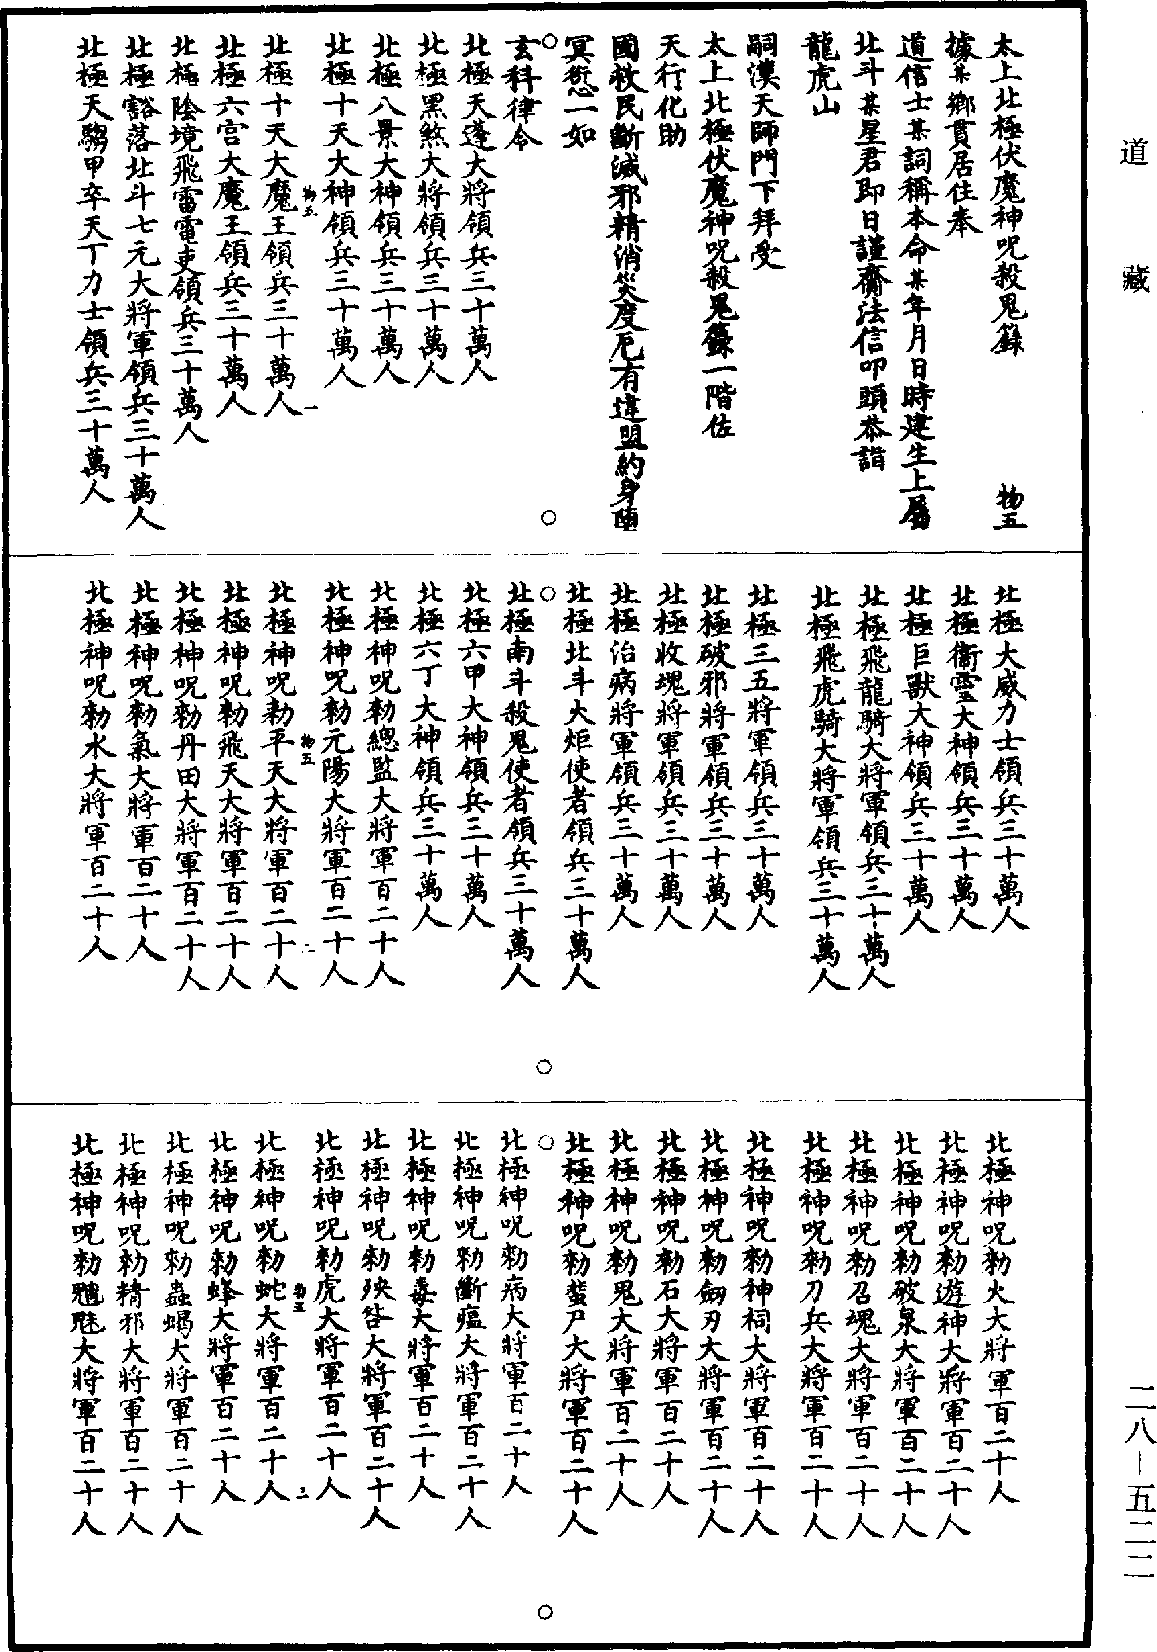 道藏
太上北極伏魔神呪殺鬼籙
物五
據某鄉貫居住奉
道信士某詞稱本命某年月日時建生上屬
北斗某星君即日謹齎法信叩頭恭詣
龍虎山
嗣漢天師門下拜受
太上北極伏魔神呪殺鬼籙一階佐
天行化助
國救民斷滅邪精消災度厄有違盟約身墮
冥愆一如
玄科律令
北極天蓬大將領兵三十萬人
北極黑煞大將領兵三十萬人
北極八景大神領兵三十萬人
北極十天大神領兵三十萬人
物五
一
北極十天大魔王領兵三十萬人
北極六宮大魔王領兵三十萬人
北極陰境飛雷雷吏領兵三十萬人
北極豁落北斗七元大將軍領兵三十萬人
北極天騶甲卒天丁力士領兵三十萬人
北極大威力士領兵三十萬人
北極衛靈大神領兵三十萬人
北極巨獸大神領兵三十萬人
北極飛龍騎大將軍領兵三十萬人
北極飛虎騎大將軍領兵三十萬人
北極三五將軍領兵三十萬人
北極破邪將軍領兵三十萬人
北極收魂將軍領兵三十萬人
北極治病將軍領兵三十萬人
北極北斗火炬使者領兵三十萬人
北極南斗殺鬼使者領兵三十萬人
北極六甲大神領兵三十萬人
北極六丁大神領兵三十萬人
北極神呪勑總監大將軍百二十人
北極神呪勑元陽大將軍百二十人
物五
二
北極神呪勑平天大將軍百二十人
北極神呪勑飛天大將軍百二十人
北極神呪勑丹田大將軍百二十人
北極神呪勑氣大將軍百二十人
北極神呪勑水大將軍百二十人
北極神呪勑火大將軍百二十人
北極神呪勑遊神大將軍百二十人
北極神呪勑破泉大將軍百二十人
北極神呪勑召魂大將軍百二十人
北極神呪勑刀兵大將軍百二十人
北極神呪勑神祠大將軍百二十人
北極神呪勑劒刃大將軍百二十人
北極神呪勑石大將軍百二十人
北極神呪勑鬼大將軍百二十人
北極神呪勑蜚尸大將軍百二十人
北極神呪勑病大將軍百二十人
北極神呪勑斷瘟大將軍百二十人
北極神呪勑毒大將軍百二十人
北極神呪勑殃咎大將軍百二十人
北極神呪勑虎大將軍百二十人
物五
三
北極神呪勑蛇大將軍百二十人
北極神呪勑蜂大將軍百二十人
北極神呪勑蟲蝎大將軍百二十人
北極神呪勑精邪大將軍百二十人
北極神呪勑魑魅大將軍百二十人
二八－五二二